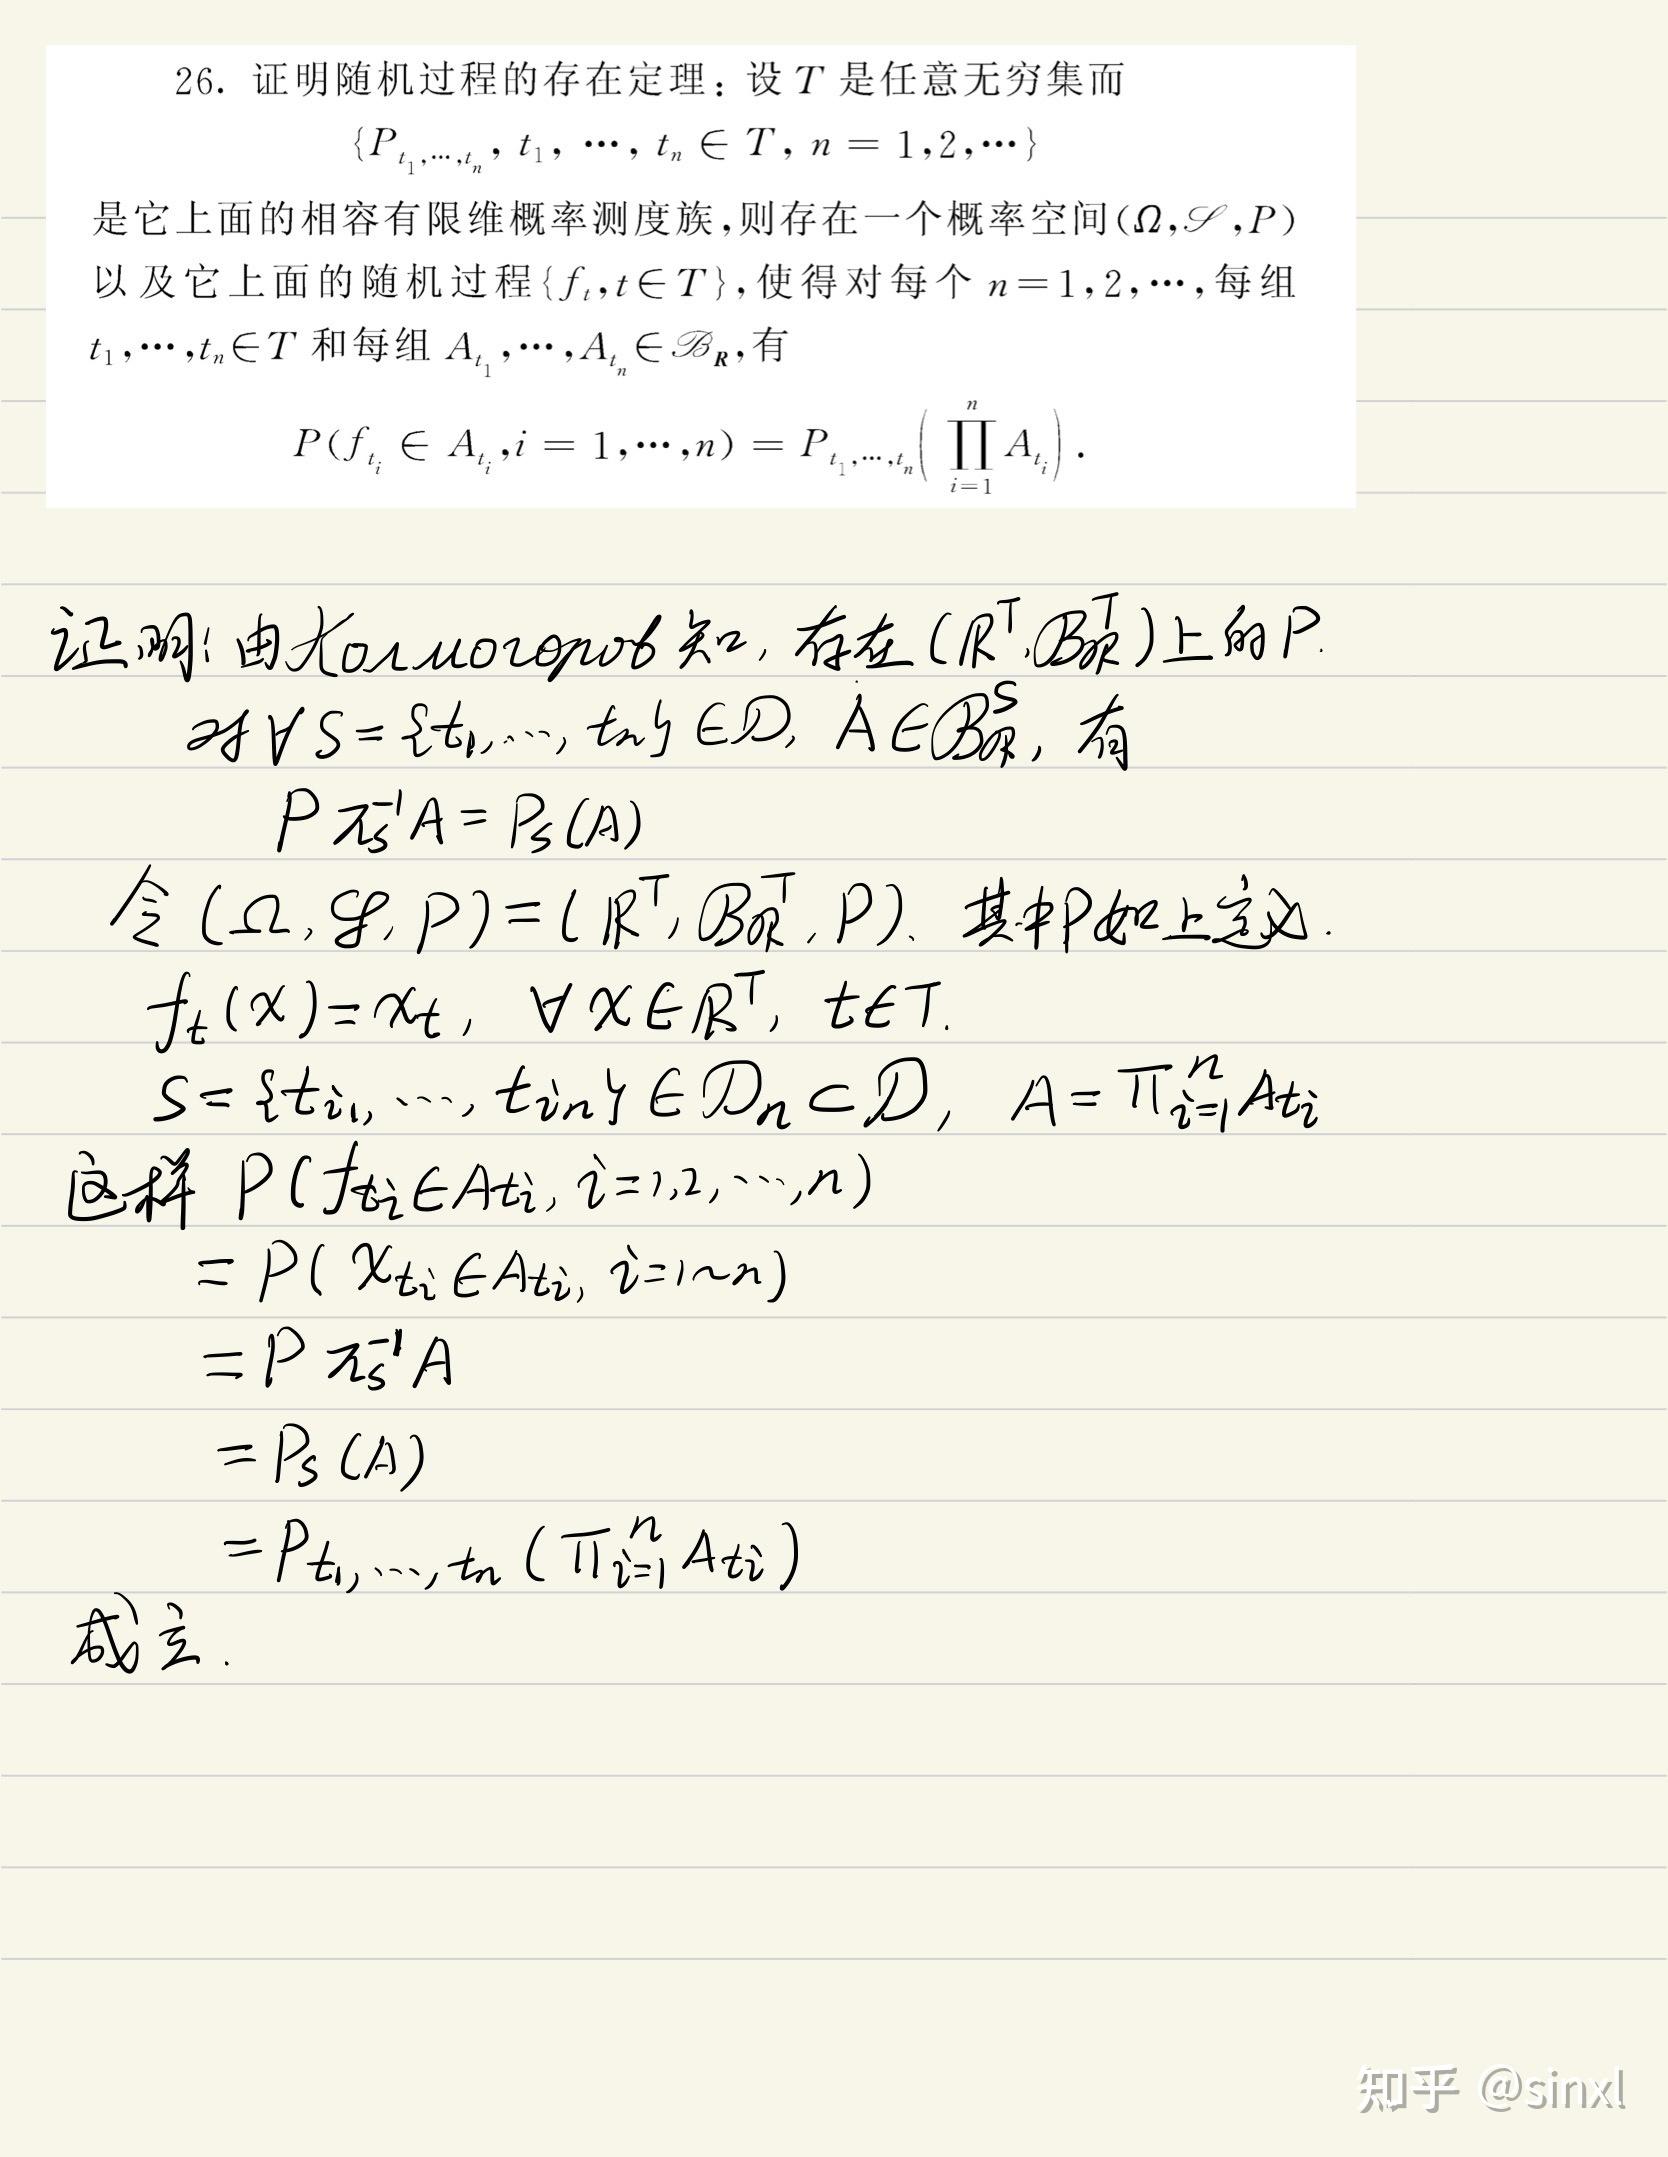 26. 证明随机过程的存在定理：设 T 是任意无穷集而
{P_{t_1,…,t_n}, t_1, …, t_n ∈ T, n = 1,2,…}
是它上面的相容有限维概率测度族,则存在一个概率空间(Ω,𝒮,P)
以及它上面的随机过程{f_t,t∈T},使得对每个 n=1,2,…,每组
t_1,…,t_n∈T 和每组 A_{t_1},…,A_{t_n}∈ℬ_R,有
P(f_{t_i} ∈ A_{t_i},i = 1,…,n) = P_{t_1,…,t_n}(∏_{i=1}^{n} A_{t_i}).
证明: 由Колмогоров知, 存在(R^T, ℬ_R^T)上的P.
对∀S={t_1,…,t_n}∈𝒟, A∈ℬ_R^S, 有
Pπ_S^{-1}A=P_S(A)
令(Ω,𝒮,P)=(R^T,ℬ_R^T,P). 其中P如上定义.
f_t(x)=x_t, ∀x∈R^T, t∈T.
S={t_{i_1},…,t_{i_n}}∈𝒟_n⊂𝒟, A=∏_{i=1}^{n}A_{t_i}
这样 P(f_{t_i}∈A_{t_i}, i=1,2,…,n)
=P(x_{t_i}∈A_{t_i}, i=1~n)
=Pπ_S^{-1}A
=P_S(A)
=P_{t_1,…,t_n}(∏_{i=1}^{n}A_{t_i})
成立.
知乎 @sinxl